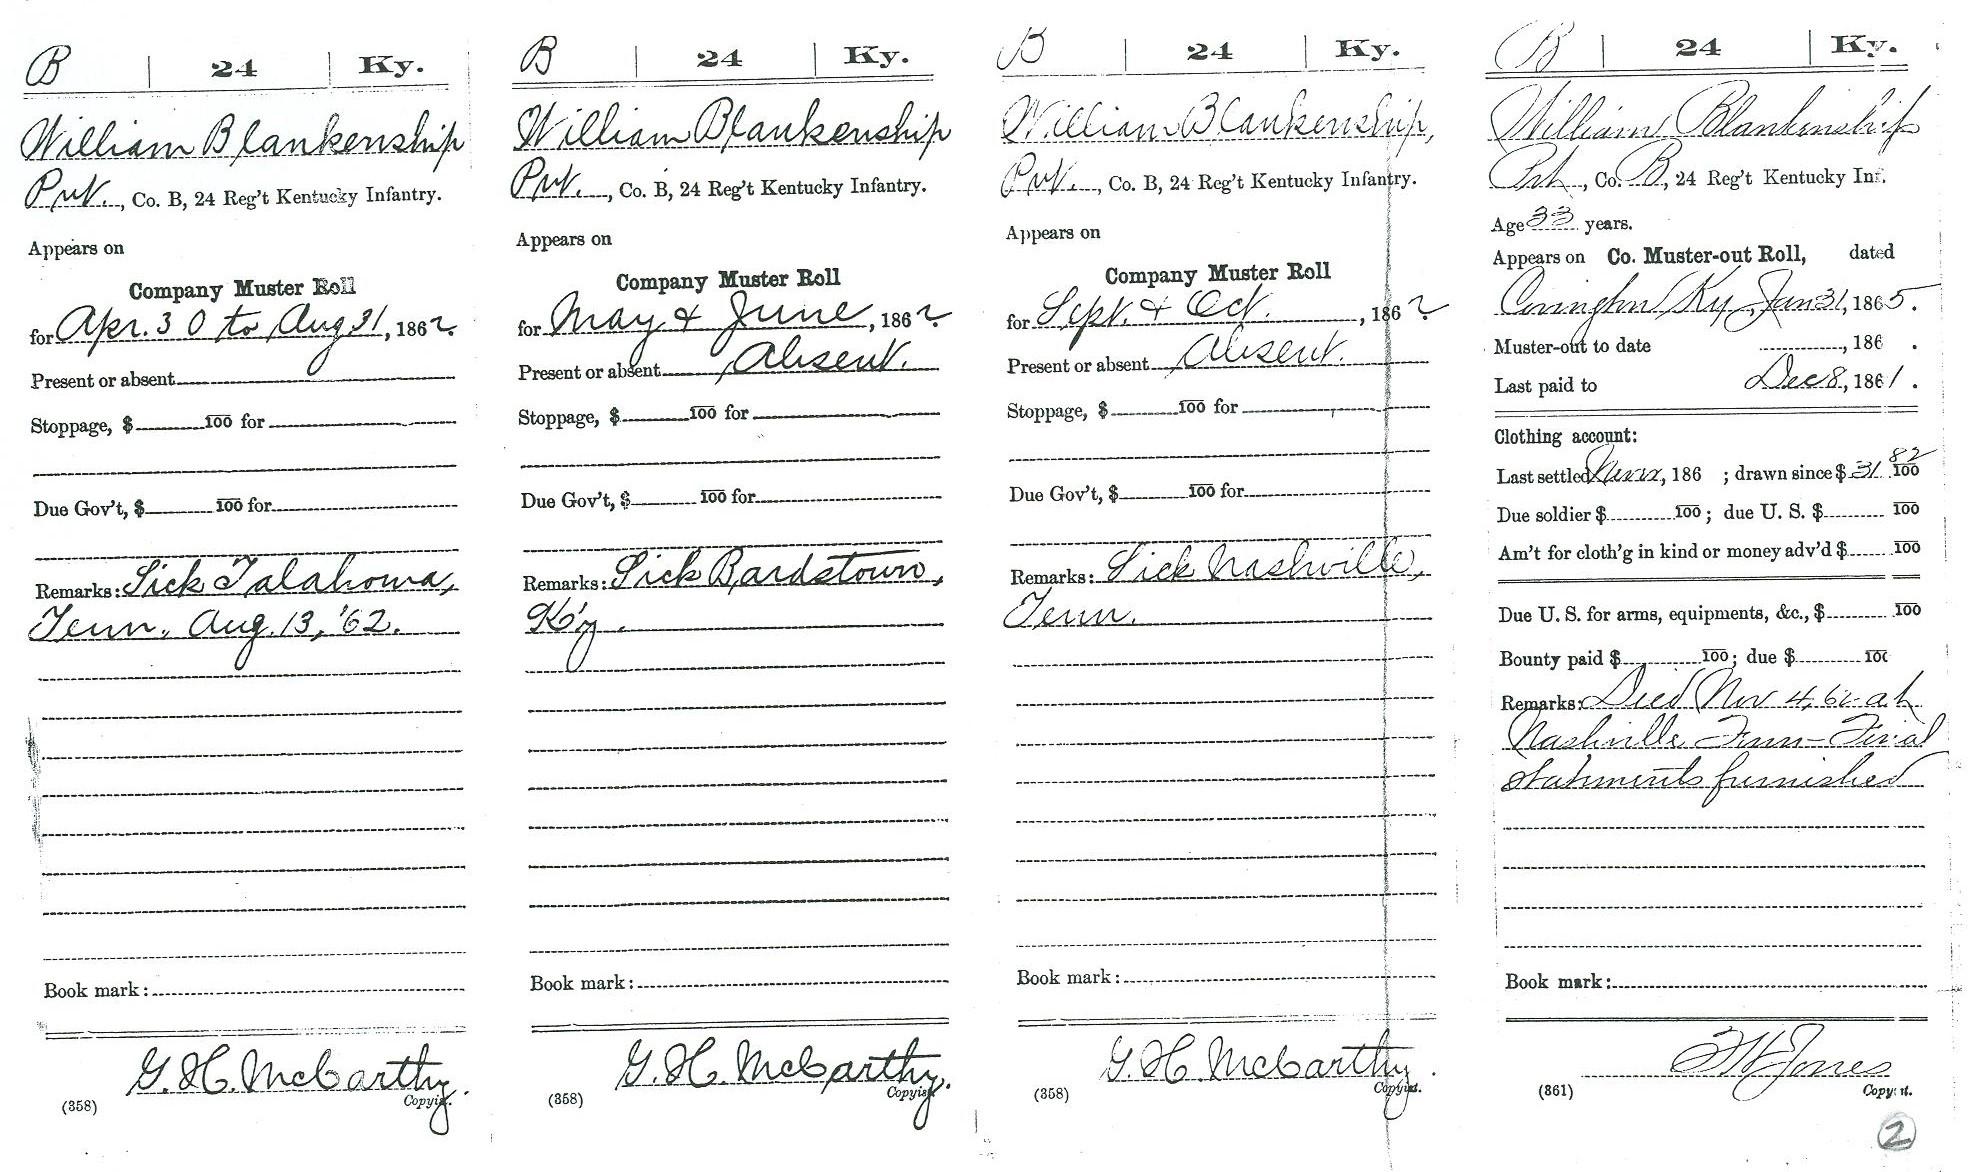 B | 24 | Ky.
William Blankenship
Pvt., Co. B, 24 Reg't Kentucky Infantry.
Appears on
Company Muster Roll
for Apr. 30 to Aug 31, 1862.
Present or absent
Stoppage, $ 100 for
Due Gov't, $ 100 for
Remarks: Sick Talahoma,
Tenn., Aug. 13, '62.
Book mark:
G. H. McCarthy.
(358) Copyist.
B | 24 | Ky.
William Blankenship
Pvt., Co. B, 24 Reg't Kentucky Infantry.
Appears on
Company Muster Roll
for May & June, 1862.
Present or absent Absent.
Stoppage, $ 100 for
Due Gov't, $ 100 for
Remarks: Sick Bardstown,
K'y.
Book mark:
G. H. McCarthy.
(358) Copyist.
B | 24 | Ky.
William Blankenship,
Pvt., Co. B, 24 Reg't Kentucky Infantry.
Appears on
Company Muster Roll
for Sept. & Oct., 1862.
Present or absent Absent.
Stoppage, $ 100 for
Due Gov't, $ 100 for
Remarks: Sick Nashville,
Tenn.
Book mark:
G. H. McCarthy.
(358) Copyist.
B | 24 | Ky.
William Blankenship
Pvt, Co. B, 24 Reg't Kentucky Inf.
Age 33 years.
Appears on Co. Muster-out Roll, dated
Covington Ky, Jan 31, 1865.
Muster-out to date , 186 .
Last paid to Dec 8, 1861.
Clothing account:
Last settled Never, 186 ; drawn since $ 31 82/100
Due soldier $ 100; due U. S. $ 100
Am't for cloth'g in kind or money adv'd $ 100
Due U. S. for arms, equipments, &c., $ 100
Bounty paid $ 100; due $ 100
Remarks: Died Nov 4, 62 at
Nashville Tenn - Final
statements furnished
Book mark:
Jones
(861) Copyist.
2